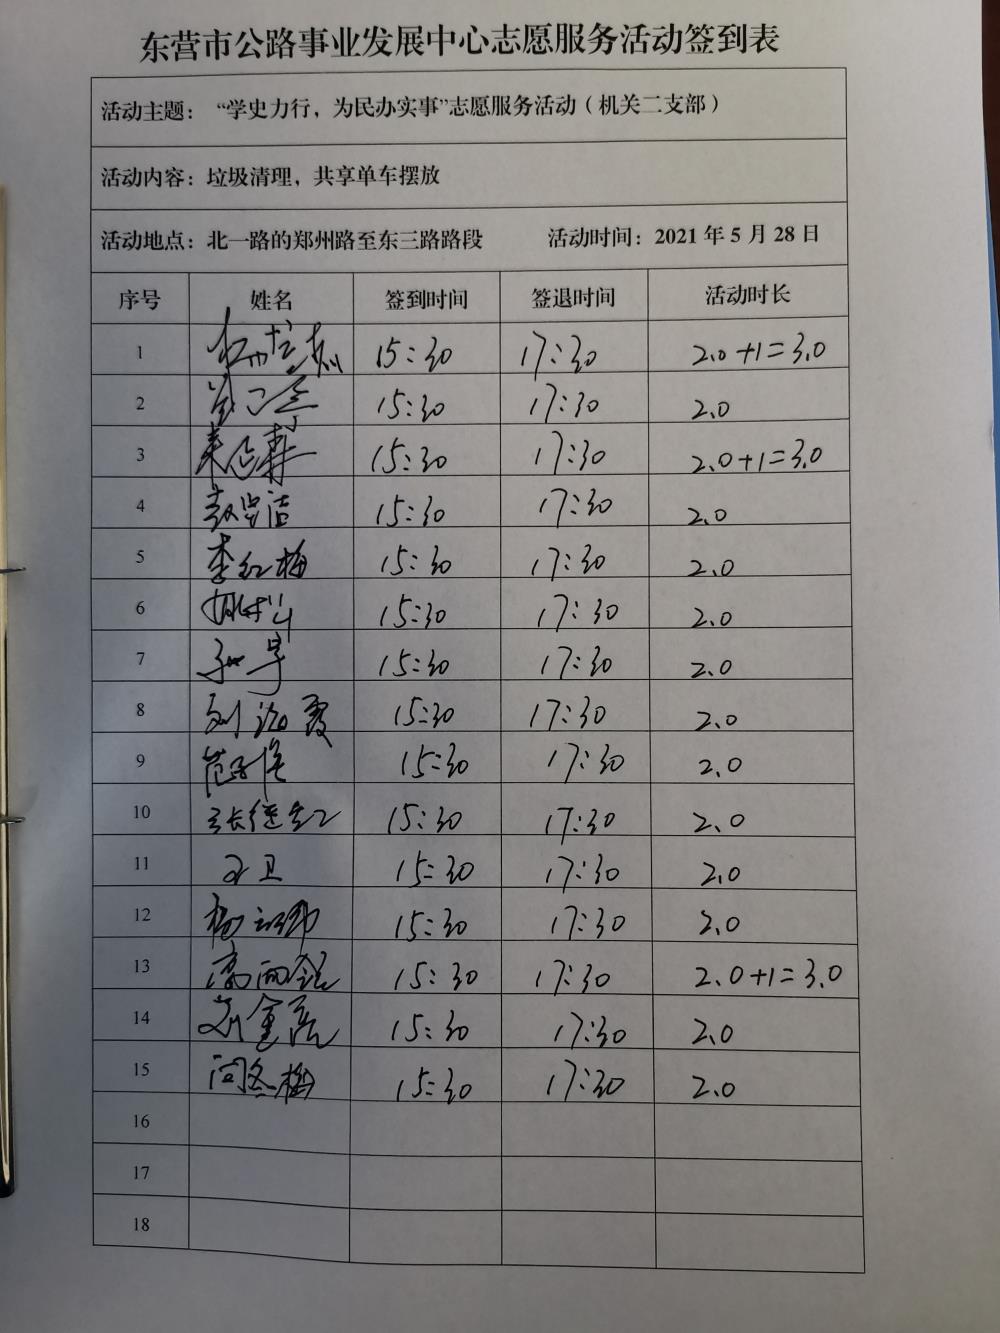 东营市公路事业发展中心志愿服务活动签到表
活动主题： “学史力行，为民办实事”志愿服务活动（机关二支部）
活动内容：垃圾清理，共享单车摆放
活动地点：北一路的郑州路至东三路路段 活动时间：2021 年 5 月 28 日
序号 姓名 签到时间 签退时间 活动时长
1 15:30 17:30 2.0+1=3.0
2 15:30 17:30 2.0
3 15:30 17:30 2.0+1=3.0
4 15:30 17:30 2.0
5 李红梅 15:30 17:30 2.0
6 15:30 17:30 2.0
7 15:30 17:30 2.0
8 15:30 17:30 2.0
9 15:30 17:30 2.0
10 15:30 17:30 2.0
11 15:30 17:30 2.0
12 15:30 17:30 2.0
13 15:30 17:30 2.0+1=3.0
14 15:30 17:30 2.0
15 闫冬梅 15:30 17:30 2.0
16
17
18